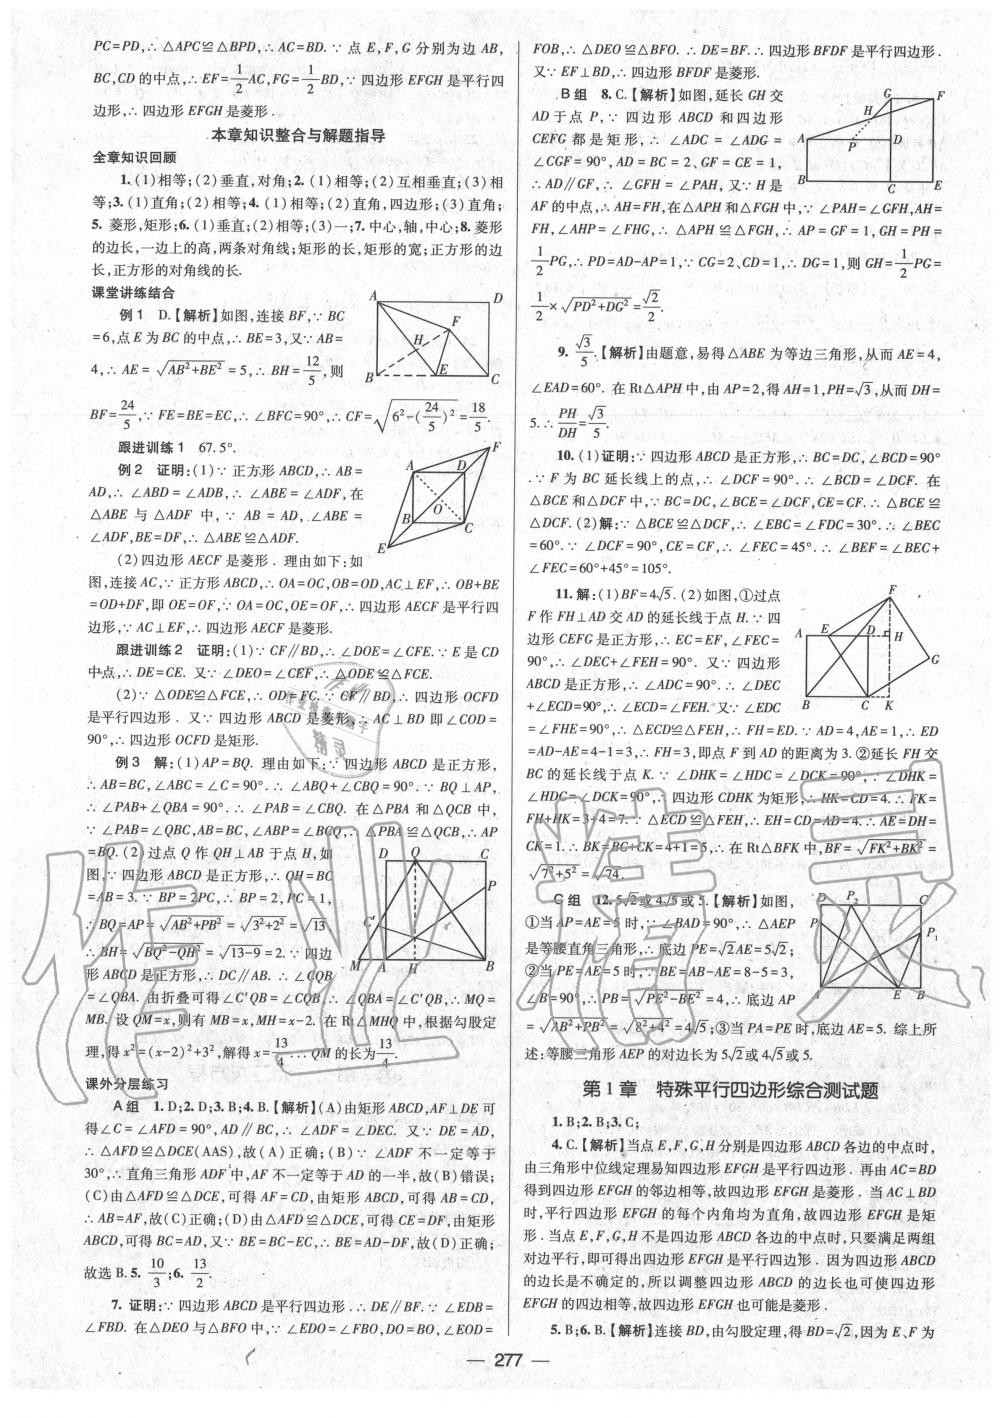 PC=PD,∴△APC≌△BPD,∴AC=BD.∵点E,F,G分别为边AB,
BC,CD的中点,∴EF=1/2AC,FG=1/2BD,∵四边形EFGH是平行四
边形,∴四边形EFGH是菱形.
本章知识整合与解题指导
全章知识回顾
1.(1)相等;(2)垂直,对角;2.(1)相等;(2)互相垂直;(3)相
等;3.(1)直角;(2)相等;4.(1)相等;(2)直角,四边形;(3)直角;
5.菱形,矩形;6.(1)垂直;(2)相等;(3)一;7.中心,轴,中心;8.菱形
的边长,一边上的高,两条对角线;矩形的长,矩形的宽;正方形的边
长,正方形的对角线的长.
课堂讲练结合
例1 D.【解析】如图,连接BF,∵BC
=6,点E为BC的中点,∴BE=3,又∵AB=
4,∴AE=√(AB²+BE²)=5,∴BH=12/5,则
BF=24/5,∵FE=BE=EC,∴∠BFC=90°,∴CF=√(6²-(24/5)²)=18/5.
跟进训练1 67.5°.
例2 证明:(1)∵正方形ABCD,∴AB=
AD,∴∠ABD=∠ADB,∴∠ABE=∠ADF,在
△ABE与△ADF中,∵AB=AD,∠ABE=
∠ADF,BE=DF,∴△ABE≌△ADF.
(2)四边形AECF是菱形.理由如下:如
图,连接AC,∵正方形ABCD,∴OA=OC,OB=OD,AC⊥EF,∴OB+BE
=OD+DF,即OE=OF,∵OA=OC,OE=OF,∴四边形AECF是平行四
边形,∵AC⊥EF,∴四边形AECF是菱形.
跟进训练2 证明:(1)∵CF∥BD,∴∠DOE=∠CFE.∵E是CD
中点,∴DE=CE.又∵∠DEO=∠CEF,∴△ODE≌△FCE.
(2)∵△ODE≌△FCE,∴OD=FC.∵CF∥BD,∴四边形OCFD
是平行四边形.又∵四边形ABCD是菱形,∴AC⊥BD即∠COD=
90°,∴四边形OCFD是矩形.
例3 解:(1)AP=BQ.理由如下:∵四边形ABCD是正方形,
∴AB=BC,∠ABC=∠C=90°.∴∠ABQ+∠CBQ=90°.∵BQ⊥AP,
∴∠PAB+∠QBA=90°.∴∠PAB=∠CBQ.在△PBA和△QCB中,
∵∠PAB=∠QBC,AB=BC,∠ABP=∠BCQ,∴△PBA≌△QCB,∴AP
=BQ.(2)过点Q作QH⊥AB于点H,如
图,∵四边形ABCD是正方形,∴QH=BC
=AB=3.∵BP=2PC,∴BP=2,PC=1,
∴BQ=AP=√(AB²+PB²)=√(3²+2²)=√13,
∴BH=√(BQ²-QH²)=√(13-9)=2.∵四边
形ABCD是正方形,∴DC∥AB.∴∠CQB
=∠QBA.由折叠可得∠C′QB=∠CQB,∴∠QBA=∠C′QB,∴MQ=
MB.设QM=x,则有MB=x,MH=x-2.在Rt△MHQ中,根据勾股定
理,得x²=(x-2)²+3²,解得x=13/4.∴QM的长为13/4.
课外分层练习
A组 1.D;2.D;3.B;4.B.【解析】(A)由矩形ABCD,AF⊥DE可
得∠C=∠AFD=90°,AD∥BC,∴∠ADF=∠DEC.又∵DE=AD,
∴△AFD≌△DCE(AAS),故(A)正确;(B)∵∠ADF不一定等于
30°,∴直角三角形ADF中,AF不一定等于AD的一半,故(B)错误;
(C)由△AFD≌△DCE,可得AF=CD,由矩形ABCD,可得AB=CD,
∴AB=AF,故(C)正确;(D)由△AFD≌△DCE,可得CE=DF,由矩形
ABCD,可得BC=AD,又∵BE=BC-EC,∴BE=AD-DF,故(D)正确;
故选B.5.10/3;6.13/2.
7.证明:∵四边形ABCD是平行四边形.∴DE∥BF.∵∠EDB=
∠FBD.在△DEO与△BFO中,∵∠EDO=∠FBO,DO=BO,∠EOD=
FOB,∴△DEO≌△BFO.∴DE=BF.∴四边形BFDF是平行四边形.
又∵EF⊥BD,∴四边形BFDF是菱形.
B组 8.C.【解析】如图,延长GH交
AD于点P,∵四边形ABCD和四边形
CEFG都是矩形,∴∠ADC=∠ADG=
∠CGF=90°,AD=BC=2、GF=CE=1,
∴AD∥GF,∴∠GFH=∠PAH,又∵H是
AF的中点,∴AH=FH,在△APH和△FGH中,∵∠PAH=∠GFH,AH=
FH,∠AHP=∠FHG,∴△APH≌△FGH,∴AP=GF=1,GH=PH=
1/2PG,∴PD=AD-AP=1,∵CG=2、CD=1,∴DG=1,则GH=1/2PG=
1/2×√(PD²+DG²)=√2/2.
9.√3/5.【解析】由题意,易得△ABE为等边三角形,从而AE=4,
∠EAD=60°.在Rt△APH中,由AP=2,得AH=1,PH=√3,从而DH=
5.∴PH/DH=√3/5.
10.(1)证明:∵四边形ABCD是正方形,∴BC=DC,∠BCD=90°
.∵F为BC延长线上的点,∴∠DCF=90°.∴∠BCD=∠DCF.在
△BCE和△DCF中,∵BC=DC,∠BCE=∠DCF,CE=CF.∴△BCE≌
△DCF.(2)解:∵△BCE≌△DCF,∴∠EBC=∠FDC=30°.∴∠BEC
=60°.∵∠DCF=90°,CE=CF,∴∠FEC=45°.∴∠BEF=∠BEC+
∠FEC=60°+45°=105°.
11.解:(1)BF=4√5.(2)如图,①过点
F作FH⊥AD交AD的延长线于点H.∵四
边形CEFG是正方形,∴EC=EF,∠FEC=
90°,∴∠DEC+∠FEH=90°.又∵四边形
ABCD是正方形,∴∠ADC=90°.∴∠DEC
+∠ECD=90°,∴∠ECD=∠FEH.又∵∠EDC
=∠FHE=90°,∴△ECD≌△FEH,∴FH=ED.∵AD=4,AE=1,∴ED
=AD-AE=4-1=3,∴FH=3,即点F到AD的距离为3.②延长FH交
BC的延长线于点K.∵∠DHK=∠HDC=∠DCK=90°,∴∠DHK=
∠HDC=∠DCK=90°,∴四边形CDHK为矩形,∴HK=CD=4.∴FK=
FH+HK=3+4=7.∵△ECD≌△FEH,∴EH=CD=AD=4.∴AE=DH=
CK=1.∴BK=BC+CK=4+1=5,∴在Rt△BFK中,BF=√(FK²+BK²)=
√(7²+5²)=√74.
C组 12.5√2或4√5或5.【解析】如图,
①当AP=AE=5时,∵∠BAD=90°,∴△AEP
是等腰直角三角形,∴底边PE=√2AE=5√2;
②当PE=AE=5时,∵BE=AB-AE=8-5=3,
∠B=90°,∴PB=√(PE²-BE²)=4,∴底边AP
=√(AB²+PB²)=√(8²+4²)=4√5;③当PA=PE时,底边AE=5.综上所
述:等腰三角形AEP的对边长为5√2或4√5或5.
第1章 特殊平行四边形综合测试题
1.B;2.B;3.C;
4.C.【解析】当点E,F,G,H分别是四边形ABCD各边的中点时,
由三角形中位线定理易知四边形EFGH是平行四边形.再由AC=BD
得到四边形EFGH的邻边相等,故四边形EFGH是菱形.当AC⊥BD
时,平行四边形EFGH的每个内角均为直角,故四边形EFGH是矩
形.当点E,F,G,H不是四边形ABCD各边的中点时,只要满足两组
对边平行,即可得出四边形EFGH是平行四边形.因为四边形ABCD
的边长是不确定的,所以调整四边形ABCD的边长也可使四边形
EFGH的四边相等,故四边形EFGH也可能是菱形.
5.B;6.B.【解析】连接BD,由勾股定理,得BD=√2,因为E、F为
— 277 —